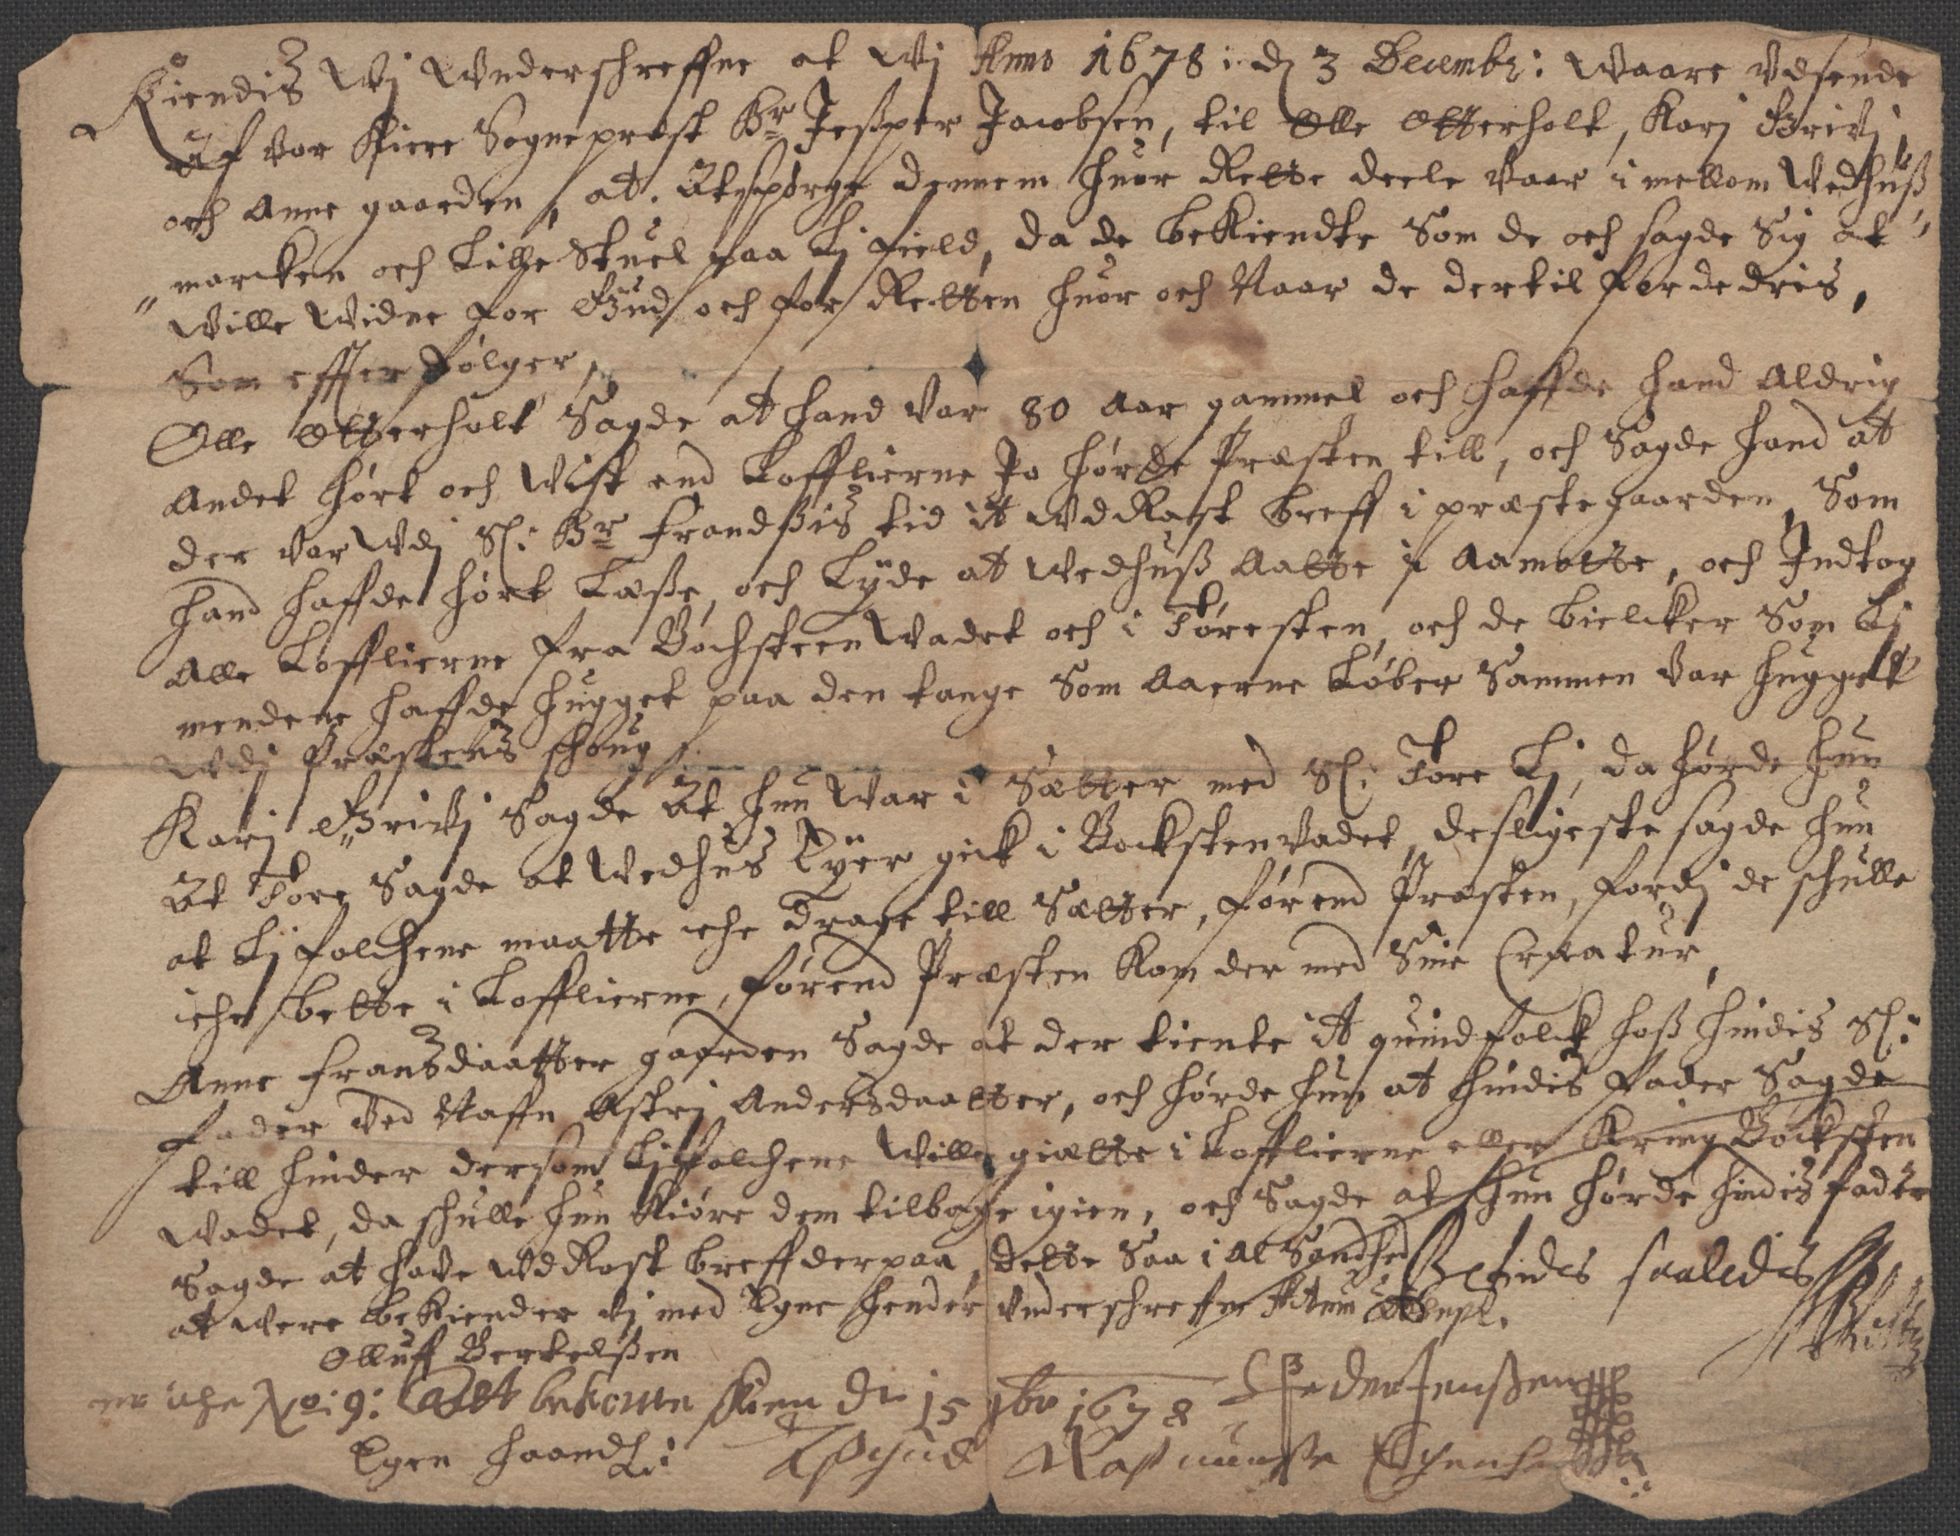 Kiendis Wj Underschreffne at Wj Anno 1678: d 3 Decembr: Waare Udsende
Aff vor Kiere Sogneprest Hr Jeßper Jacobsen, til Olle Otterholt, Karj Grivj,
och Anne gaarden, at Atspørge dennem huor Rette deele Vaar i mellom Wedhuß
marcken och Lille Skuel paa Lj field, da de bekiendte Som de och sagde Sig at
Wille Widne for Gud och for Retten huor och Naar de dertil fordedris,
Som effter følger,
Olle Otterholt Sagde at hand Var 80 Aar gammel och haffde hand Aldrig
Andet hørt och Wist end Lofflierne Jo hørde Præsten till, och Sagde hand at
der Var Udj Sl: Hr Frandßis tid it UdRast breff i præstegaarden, Som
hand haffde hørt Læße, och Lyde at Wedhuß Aatte i Aamotte, och Jndtog
Alle Lofflierne fra Bochsteen Wadet och i Føresten, och de bielcker Som Lj
mendene haffde hugget paa den tange Som Aaerne Løber Sammen Var hugget
Udj Præstens schoug
Karj Grivj Sagde At hun War i Sætter med Sl: Tore Lj, da hørde hun
At Tore Sagde at Wedhus Eyer gick i Bockstenvadet, desligeste sagde hun
at Lj folchene maatte iche Drage till Sætter, før end Præsten, fordj de schulle
iche bette i Lofflierne, førend Præsten Kom der med Sine Creatur,
Anne Fransdaatter gaarden Sagde at der tiente it quindfolck hoß hindis Sl:
Fader Ved Naffn Astrj Andersdaatter, och hørde hun at hindis Fader Sagde
till hinder dersom Ljfolchene Wille giætte i Lofflierne eller Kring Bocksten
Wadet, da schulle hun Kiøre dem tilbage igien, och Sagde at hun hørde hindis fader
Sagde at have UdRast breff derpaa, dette Saa i Al Sandhed befindes saaledis
at Were bekiender Vj med Egne hender Underschreffne Actum Ut Supr.
Olluff Bertelßen
No: 9: Skien d 15 9br 1678 Peder Jenßen
Egen haand Rasmuus